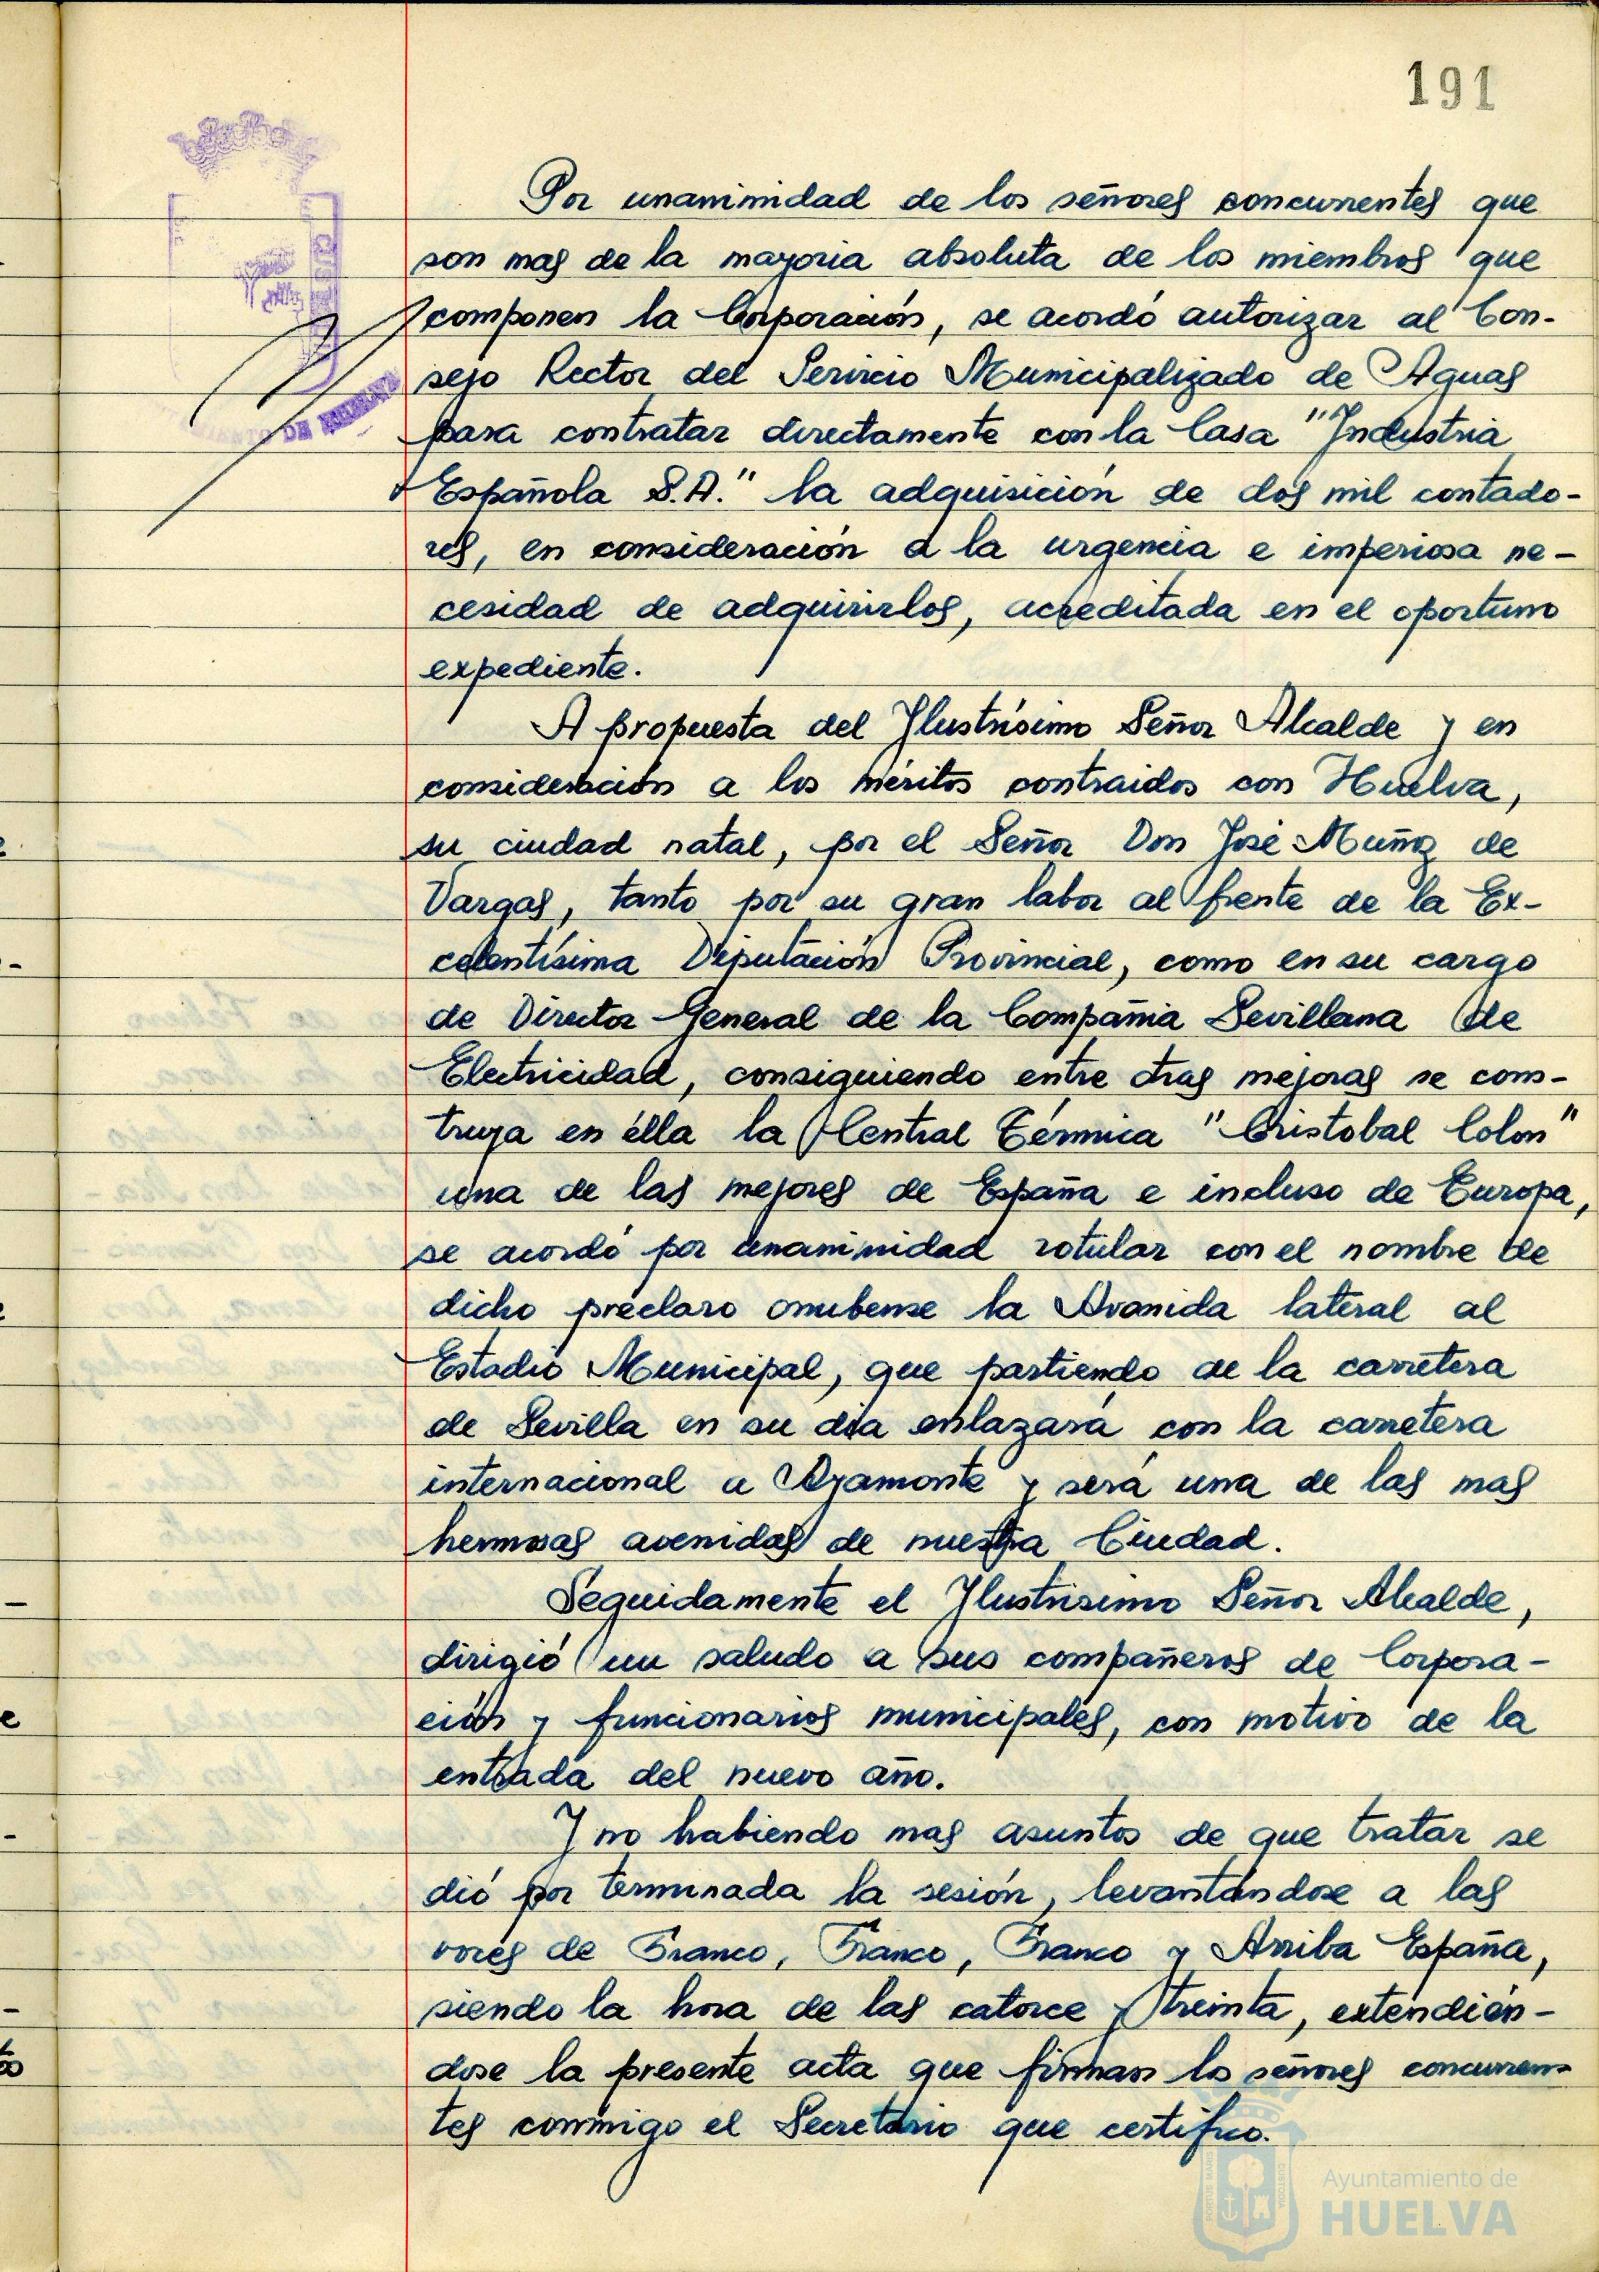 191
Por unanimidad de los señores concurrentes que
son mas de la mayoria absoluta de los miembros que
componen la Corporación, se acordó autorizar al Con-
sejo Rector del Servicio Municipalizado de Aguas
para contratar directamente con la Casa "Industria
Española S.A." la adquisición de dos mil contado-
res, en consideración a la urgencia e imperiosa ne-
cesidad de adquirirlos, acreditada en el oportuno
expediente.
A propuesta del Ilustrísimo Señor Alcalde y en
consideración a los méritos contraidos con Huelva,
su ciudad natal, por el Señor Don José Muñoz de
Vargas, tanto por su gran labor al frente de la Ex-
celentísima Diputación Provincial, como en su cargo
de Director General de la Compañia Sevillana de
Electricidad, consiguiendo entre otras mejoras se cons-
truya en élla la Central Térmica "Cristobal Colon"
una de las mejores de España e incluso de Europa,
se acordó por unanimidad rotular con el nombre de
dicho préclaro onubense la Avenida lateral al
Estadio Municipal, que partiendo de la carretera
de Sevilla en su dia enlazará con la carretera
internacional a Ayamonte y será una de las mas
hermosas avenidas de nuestra Ciudad.
Seguidamente el Ilustrisimo Señor Alcalde,
dirigió un saludo a sus compañeros de Corpora-
ción y funcionarios municipales, con motivo de la
entrada del nuevo año.
Y no habiendo mas asuntos de que tratar se
dió por terminada la sesión, levantándose a las
voces de Franco, Franco, Franco y Arriba España,
siendo la hora de las catorce y treinta, extendién-
dose la presente acta que firman los señores concurren-
tes conmigo el Secretario que certifico.
Ayuntamiento de
HUELVA